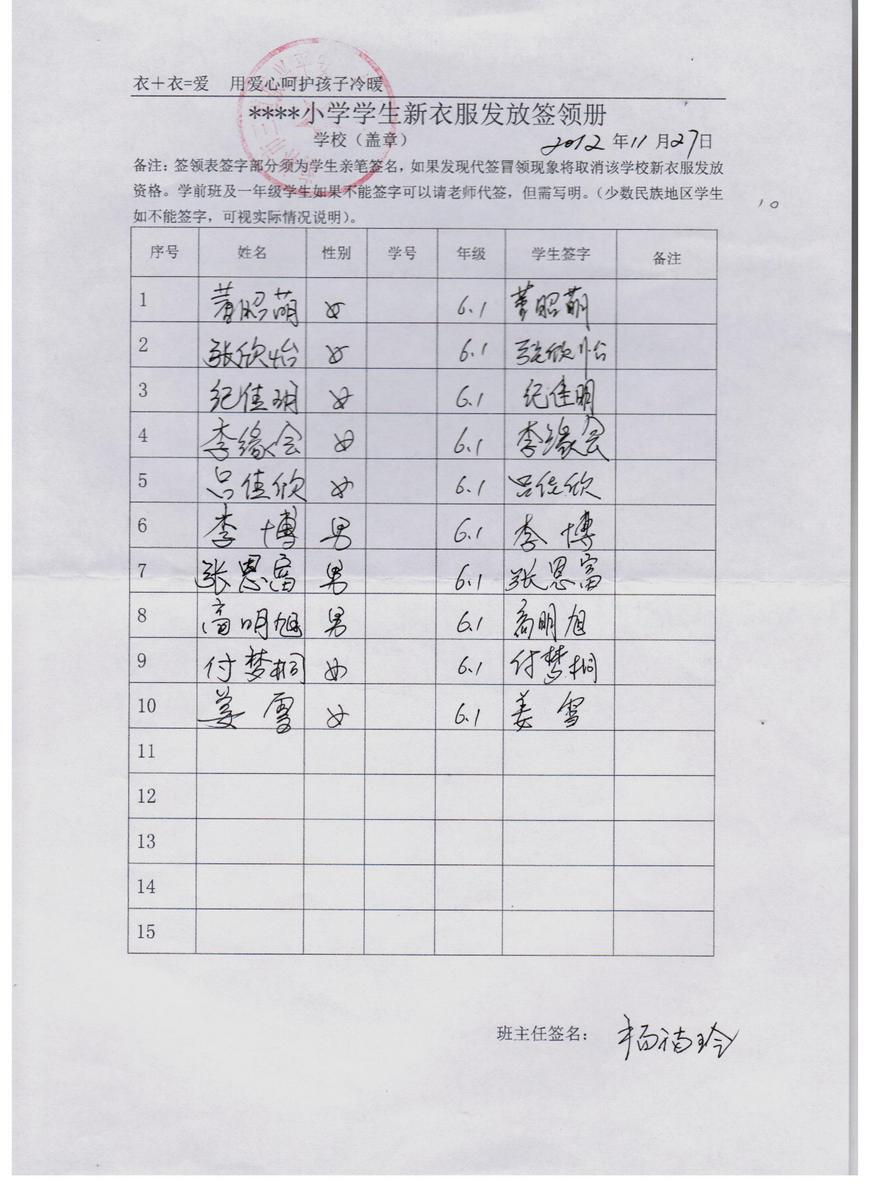 衣＋衣=爱 用爱心呵护孩子冷暖
****小学学生新衣服发放签领册
学校（盖章） 2012 年 11 月 27 日
备注：签领表签字部分须为学生亲笔签名，如果发现代签冒领现象将取消该学校新衣服发放
资格。学前班及一年级学生如果不能签字可以请老师代签，但需写明。（少数民族地区学生
如不能签字，可视实际情况说明）。
10
序号 姓名 性别 学号 年级 学生签字 备注
1 董昭萌 女 6.1 董昭萌
2 张欣怡 女 6.1 张欣怡
3 纪佳明 女 6.1 纪佳明
4 李缘会 女 6.1 李缘会
5 吕佳欣 女 6.1 吕佳欣
6 李博 男 6.1 李博
7 张恩富 男 6.1 张恩富
8 高明旭 男 6.1 高明旭
9 付梦桐 女 6.1 付梦桐
10 姜雪 女 6.1 姜雪
11
12
13
14
15
班主任签名：